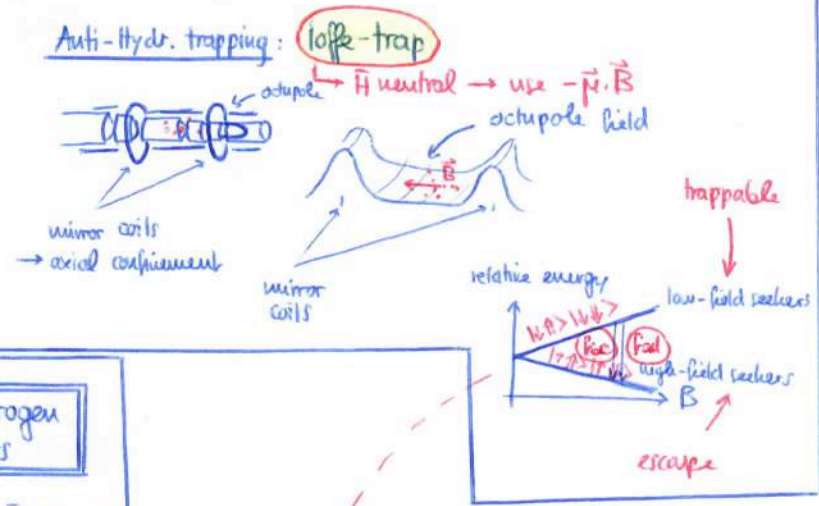 Anti-Hydr. trapping: Ioffe-trap
H̄ neutral → use -μ⃗·B⃗
octupole
octupole field
B⃗
mirror coils
→ axial confinement
mirror
coils
trappable
relative energy
low-field seekers
|↓⇑> |↓⇓>
|↑⇑> |↑⇓>
f_bc
f_ad
high-field seekers
B
escape
rogen
s